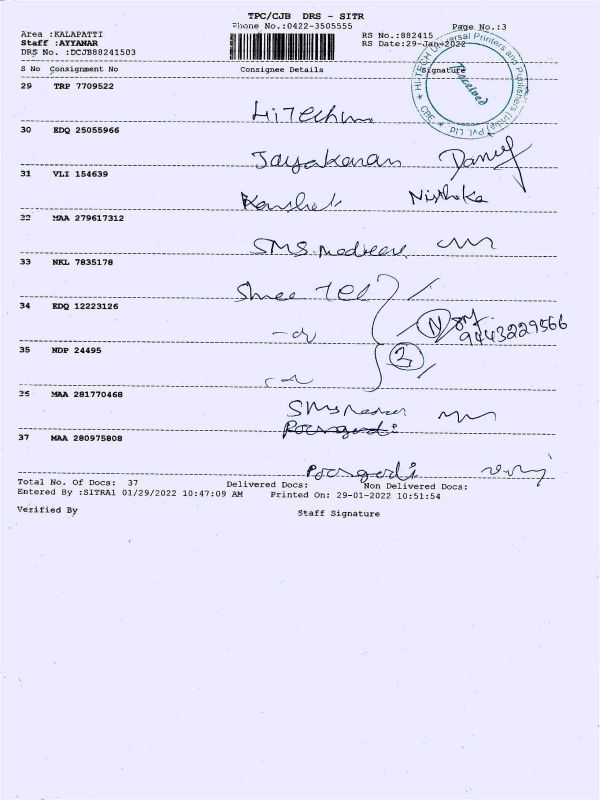 TPC/CJB DRS - SITR
Phone No.:0422-3505555
Page No.:3
Area :KALAPATTI
RS No.:882415
Staff :AYYANAR
RS Date:29-Jan-2022
DRS No. :DCJB88241503
S No Consignment No Consignee Details Signature
Hi-TECH Universal Printers and Publishers (India) Pvt. Ltd
CBE
Received
29 TRP 7709522
HiTech
30 EDQ 25055966
Jayakaran
31 VLI 154639
Nishoka
32 MAA 279617312
SMS
33 NKL 7835178
Shree Tel
34 EDQ 12223126
N
9443229566
-do
35 NDP 24495
2
36 MAA 281770468
SMS
37 MAA 280975808
Total No. Of Docs: 37 Delivered Docs: Non Delivered Docs:
Entered By :SITRA1 01/29/2022 10:47:09 AM Printed On: 29-01-2022 10:51:54
Verified By Staff Signature